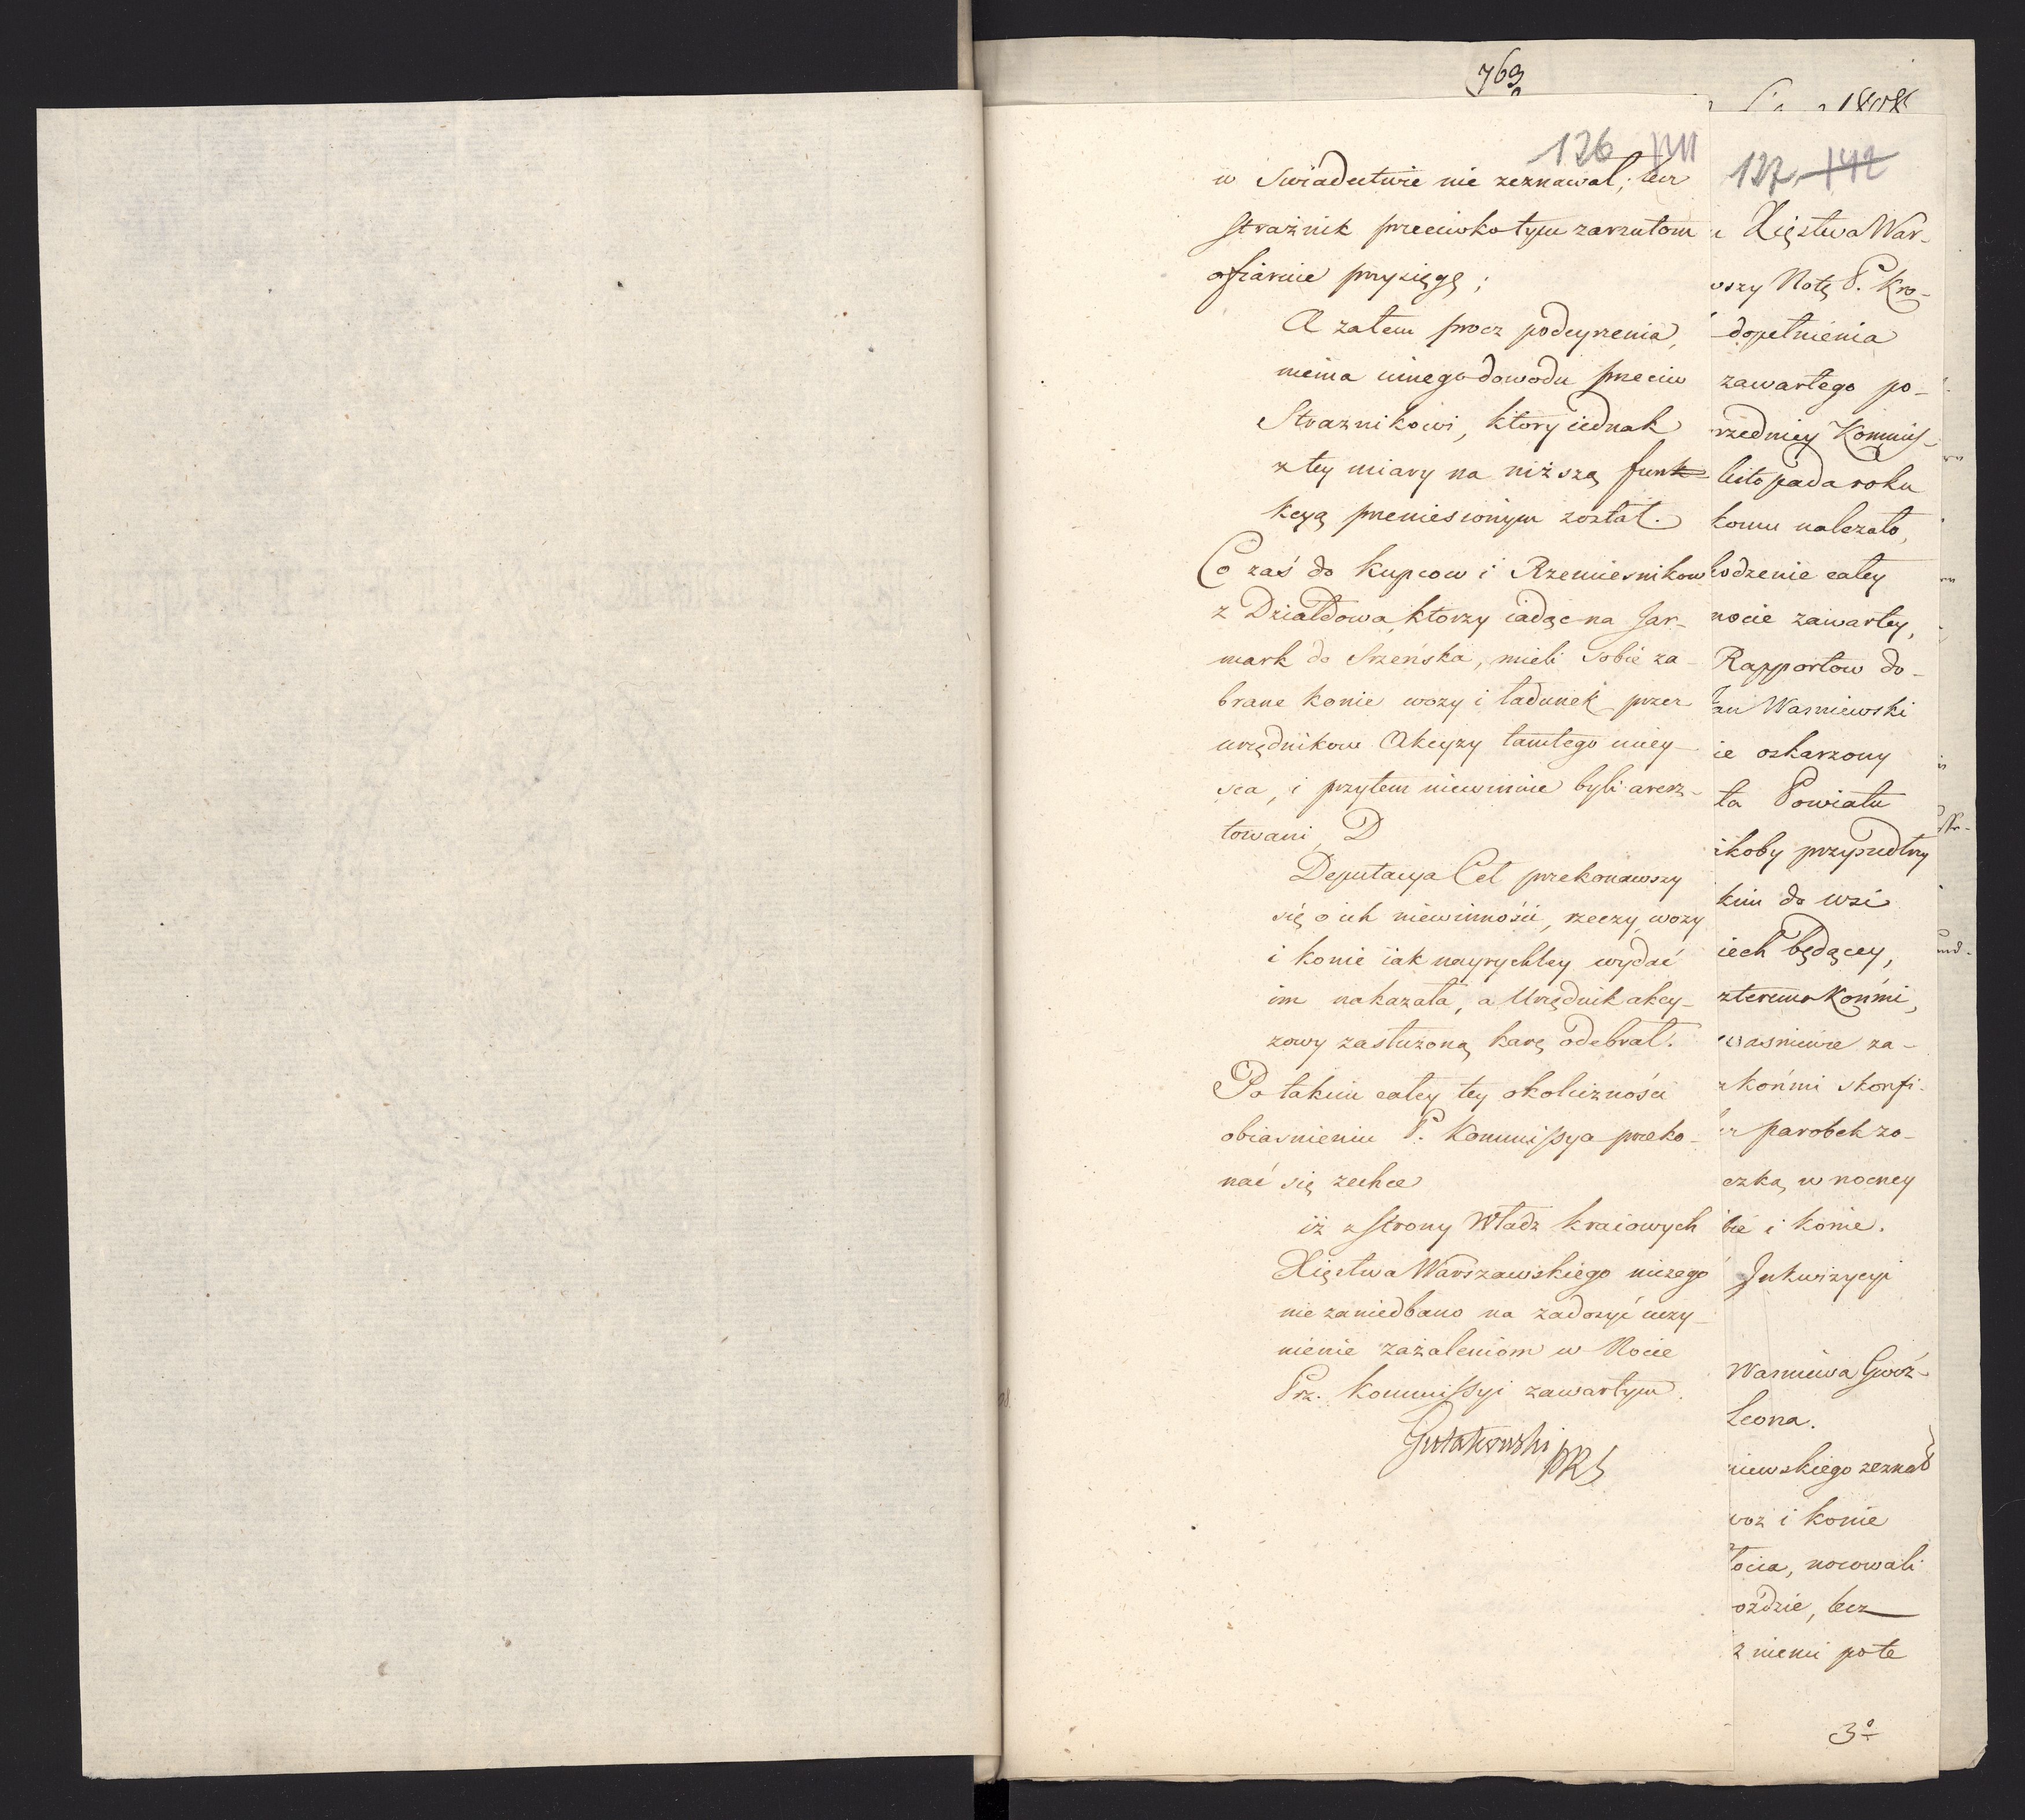 763
1808
126 141
w swiadectwie nie zeznawał; lecz
strażnik przeciwko tym zarzutom
ofiaruie przysięgę;
A zatem procz podeyrzenia,
niema innego dowodu przeciw
Strażnikowi, ktory iednak
z tey miary na niższą funk
kcyą przeniesionym został.
Co zaś do kupcow i Rzemiesnikow
z Działdowa, ktorzy iadąc na Jar-
mark do Srzeńska, mieli sobie za-
brane konie wozy i ładunek przez
urzędnikow Akcyzy tamtego miey-
sca, i przytem niewinnie byli aresz-
towani, D
Deputacya Cel przekonawszy
się o ich niewinności, rzeczy, wozy
i konie iak nayrychley wydać
im nakazała, a Urzędnik akcy-
zowy zasłużoną karę odebrał.
Po takim całey tey okoliczności
obiasnieniu P. Kommissya przeko-
nać się zechce
iż z strony Władz kraiowych
Xięstwa Warszawskiego niczego
nie zaniedbano na zadosyć uczy-
nienie zażaleniom w Nocie
Prz. Kommissyi zawartym.
Gutakowski
PRS
127 142
Xięstwa War-
wszy Notę P. Kro-
dopełnienia
zawartego po-
rzedniey Kommis-
listopada roku
komu należało,
hodzenie całey
nocie zawartey,
Rapportow do-
Jan Wasniewski
ie oskarzony
ta Powiatu
ikoby przyszedłszy
kim do wsi
iech będącey,
zterema Końmi,
wasniewie za-
z końmi skonfi-
parobek zo-
czką w nocney
bie i konie.
Inkwizycyi
Wasniewa Gwoź-
Leona.
niewskiego zeznał
woz i konie
łocia, nocowali
oździe, lecz
z niemi pote
3o